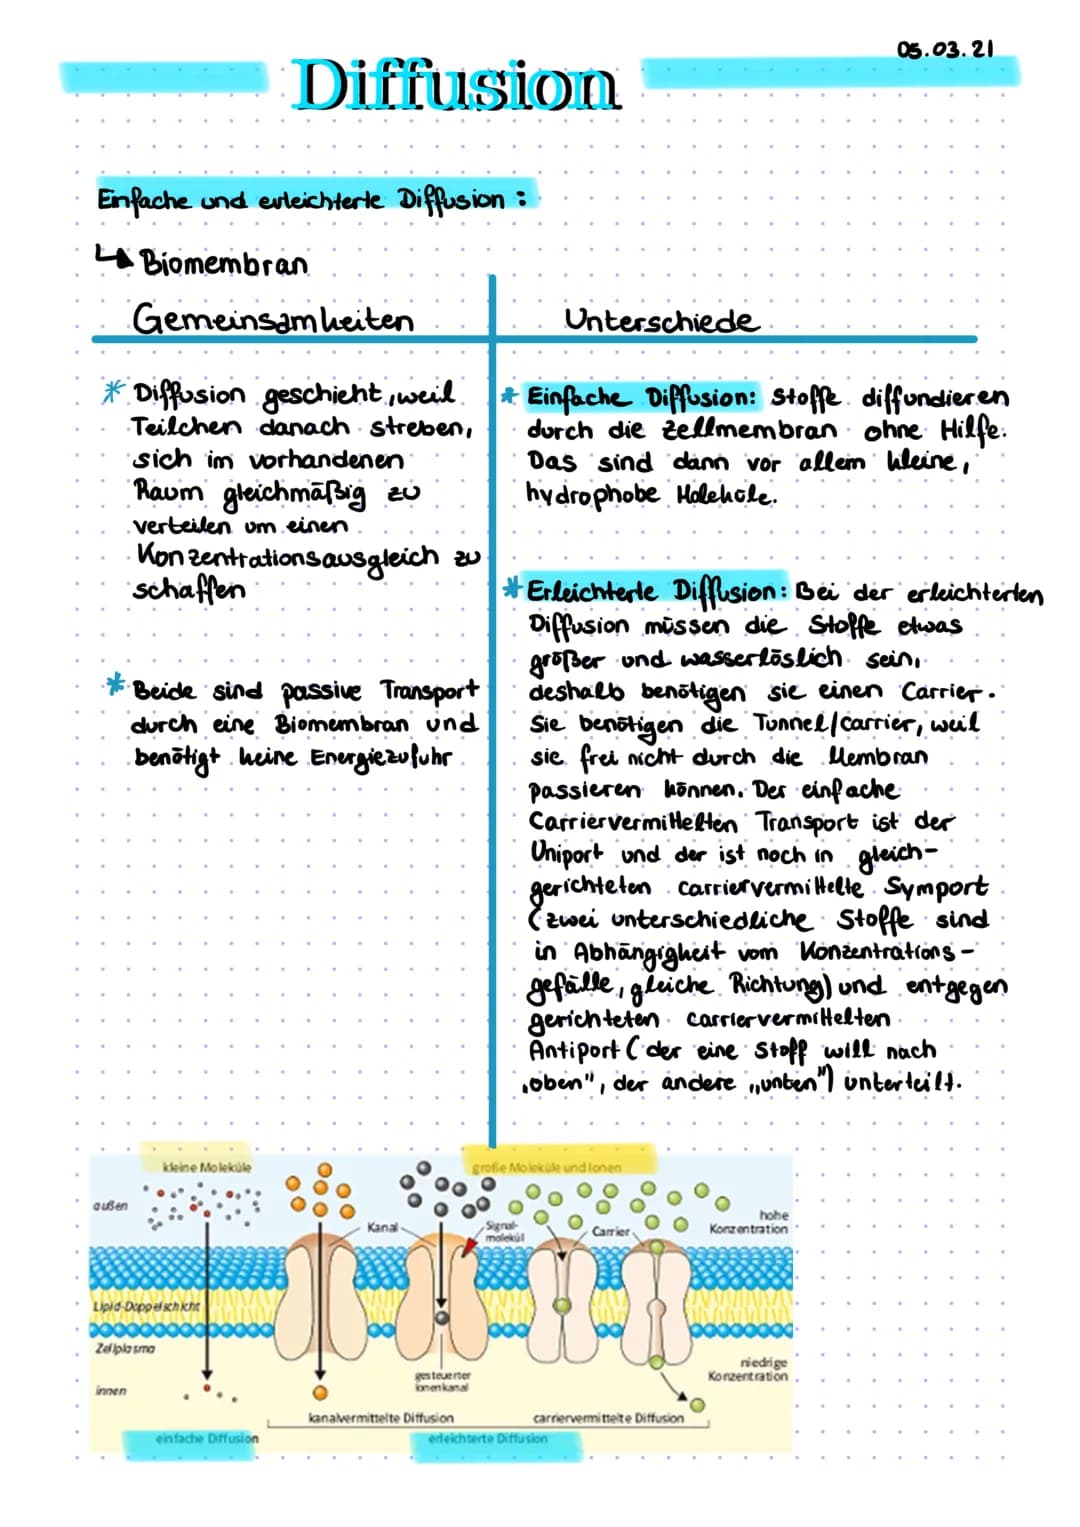 05.03.21
Diffusion
Einfache und erleichterte Diffusion:
Biomembran
Gemeinsamkeiten
* Diffusion geschieht, weil
Teilchen danach streben,
sich im vorhandenen
Raum gleichmäßig zu
verteilen um einen
Konzentrationsausgleich zu
schaffen
* Beide sind passive Transport
durch eine Biomembran und
benötigt keine Energiezufuhr
Unterschiede
* Einfache Diffusion: Stoffe diffundieren
durch die Zellmembran ohne Hilfe.
Das sind dann vor allem kleine,
hydrophobe Moleküle.
* Erleichterte Diffusion: Bei der erleichterten
Diffusion müssen die Stoffe etwas
größer und wasserlöslich sein,
deshalb benötigen sie einen Carrier.
Sie benötigen die Tunnel/Carrier, weil
sie frei nicht durch die Membran
passieren können. Der einfache
Carriervermittelten Transport ist der
Uniport und der ist noch in gleich-
gerichteten carriervermittelte Symport
(zwei unterschiedliche Stoffe sind
in Abhängigkeit vom Konzentrations-
gefälle, gleiche Richtung) und entgegen
gerichteten carriervermittelten
Antiport (der eine Stoff will nach
„oben", der andere „unten") unterteilt.
kleine Moleküle
große Moleküle und Ionen
außen
Kanal
Signal-
molekül
Carrier
hohe
Konzentration
Lipid-Doppelschicht
Zellplasma
innen
gesteuerter
Ionenkanal
niedrige
Konzentration
kanalvermittelte Diffusion
carriervermittelte Diffusion
einfache Diffusion
erleichterte Diffusion